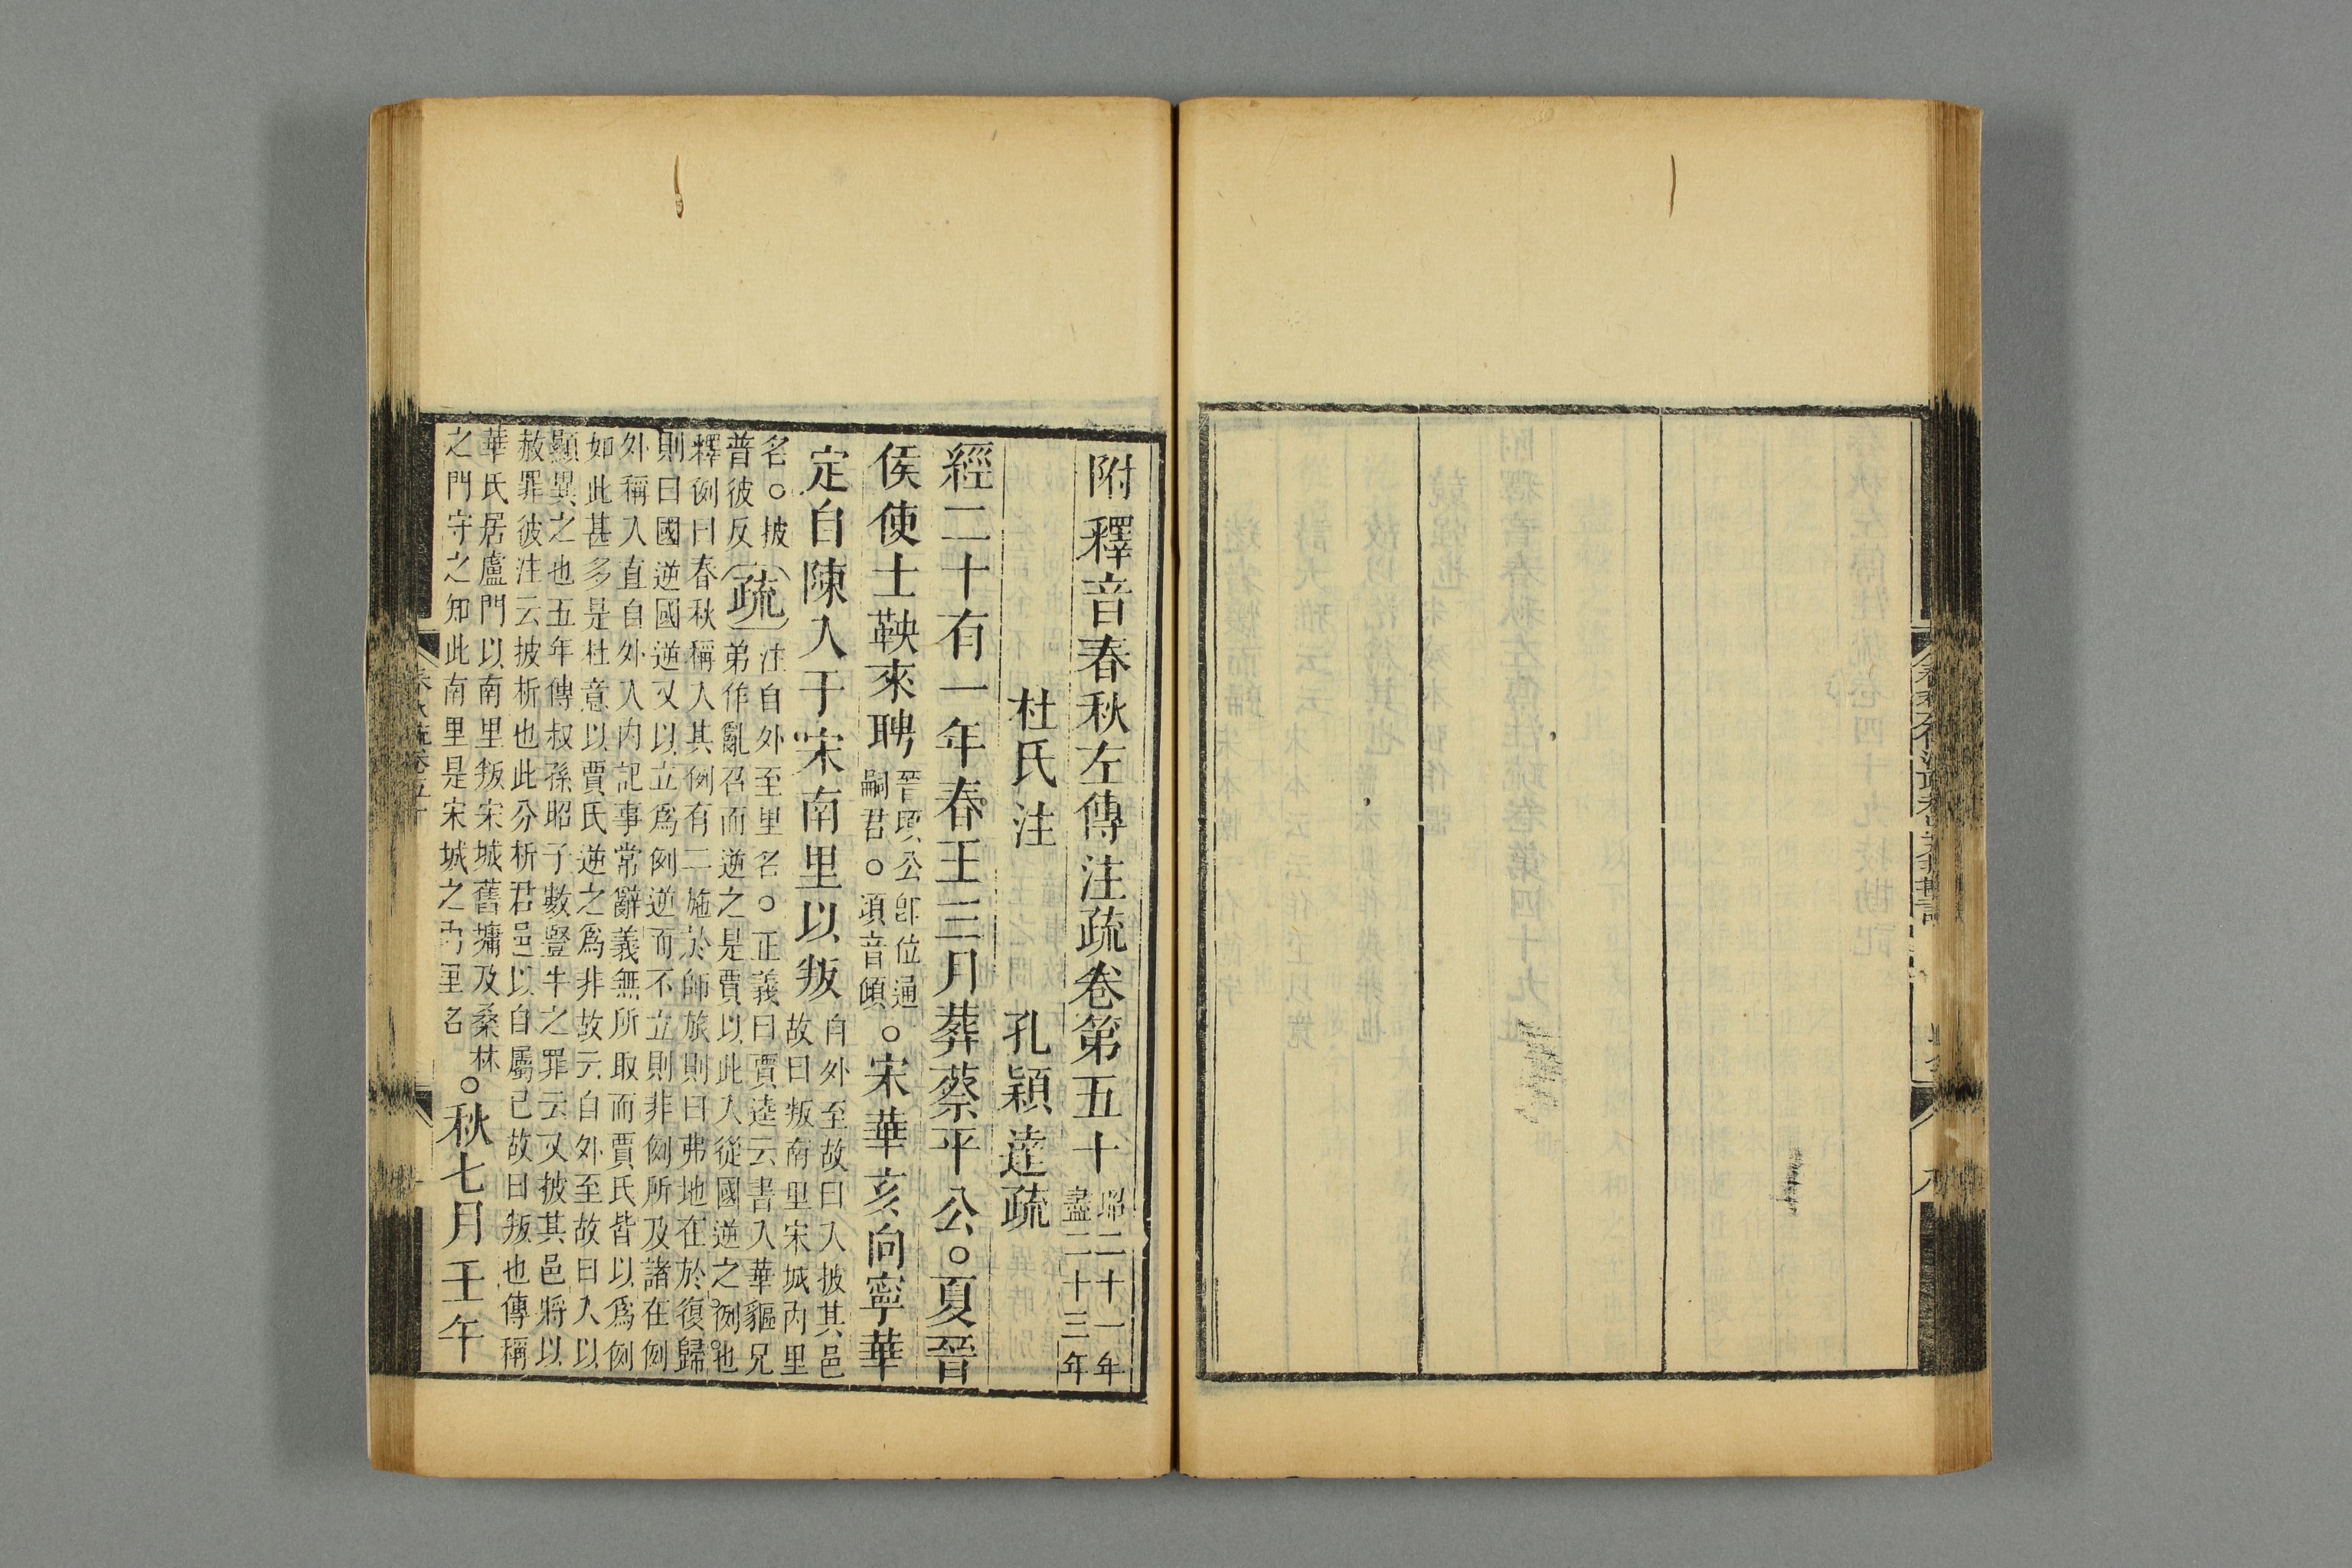 附釋音春秋左傳注疏卷第五十
昭二十一年
盡二十三年
杜氏注　孔穎達疏
經二十有一年春王三月葬蔡平公。夏晉
侯使士鞅來聘
晉頃公即位通
嗣君。頃音傾
。宋華亥向寧華
定自陳入于宋南里以叛
自外至故曰入披其邑
故曰叛南里宋城內里
名。披
普彼反
疏
注自外至里名。正義曰賈逵云書入華貙兄
弟作亂召而逆之是賈以此入從國逆之例也
釋例曰春秋稱入其例有二施於師旅則曰弗地在於復歸
則曰國逆國逆又以立爲例逆而不立則非例所及諸在例
外稱入直自外入內記事常辭義無所取而賈氏皆以爲例
如此甚多是杜意以賈氏逆之爲非故云自外至故曰入以
顯異之也五年傳叔孫昭子數豎牛之罪云又披其邑將以
赦罪彼注云披析也此分析君邑以自屬己故曰叛也傳稱
華氏居盧門以南里叛宋城舊墉及桑林
之門守之知此南里是宋城之內里名
。秋七月壬午